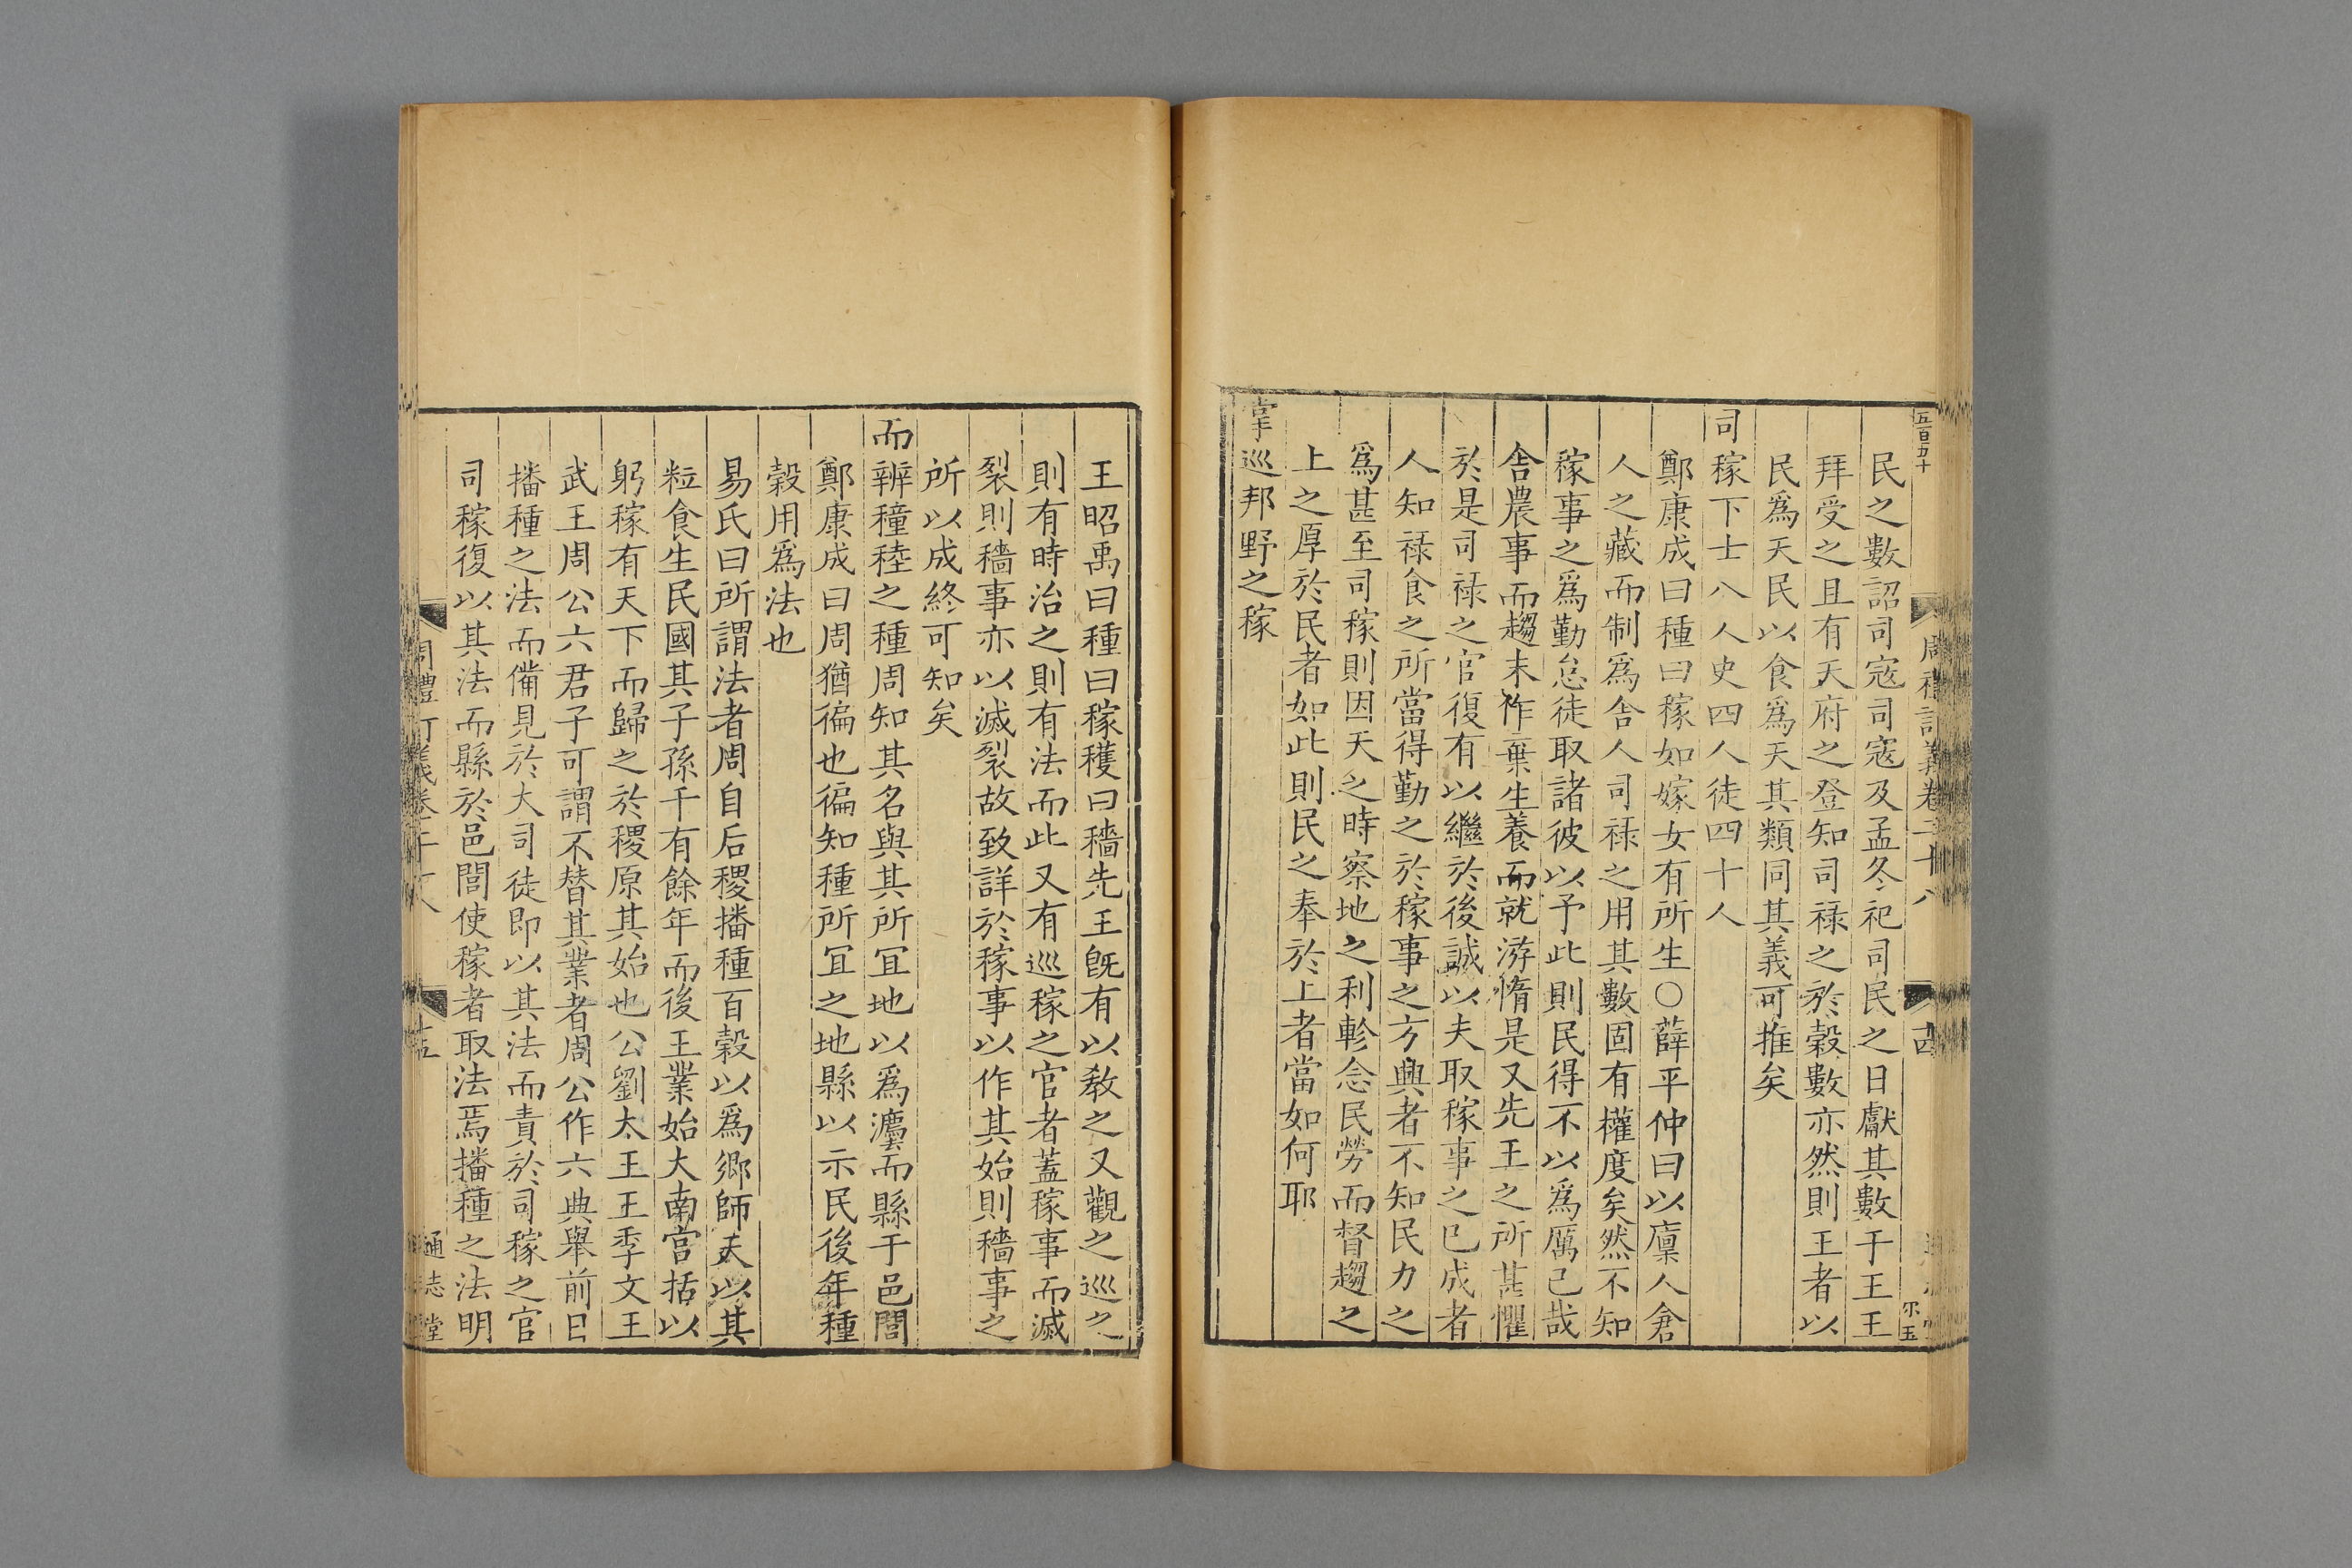 五百五十
周禮訂義卷二十八
十四
民之數詔司寇司寇及孟冬祀司民之日獻其數于王王
拜受之且有天府之登知司祿之於穀數亦然則王者以
民爲天民以食爲天其類同其義可推矣
司稼下士八人史四人徒四十人
鄭康成曰種曰稼如嫁女有所生○薛平仲曰以廩人倉
人之藏而制爲舍人司祿之用其數固有權度矣然不知
稼事之爲勤怠徒取諸彼以予此則民得不以爲厲己哉
舍農事而趨末作棄生養而就游惰是又先王之所甚懼
於是司祿之官復有以繼於後誠以夫取稼事之已成者
人知祿食之所當得勤之於稼事之方興者不知民力之
爲甚至司稼則因天之時察地之利軫念民勞而督趨之
上之厚於民者如此則民之奉於上者當如何耶
掌巡邦野之稼
王昭禹曰種曰稼穫曰穡先王旣有以敎之又觀之巡之
則有時治之則有法而此又有巡稼之官者蓋稼事而滅
裂則穡事亦以滅裂故致詳於稼事以作其始則穡事之
所以成終可知矣
而辨穜稑之種周知其名與其所宜地以爲灋而縣于邑閭
鄭康成曰周猶徧也徧知種所宜之地縣以示民後年種
穀用爲法也
易氏曰所謂法者周自后稷播種百穀以爲鄉師夫以其
粒食生民國其子孫千有餘年而後王業始大南宮括以
躬稼有天下而歸之於稷原其始也公劉太王王季文王
武王周公六君子可謂不替其業者周公作六典舉前日
播種之法而備見於大司徒即以其法而責於司稼之官
司稼復以其法而縣於邑閭使稼者取法焉播種之法明
周禮訂義卷二十八
十五
通志堂